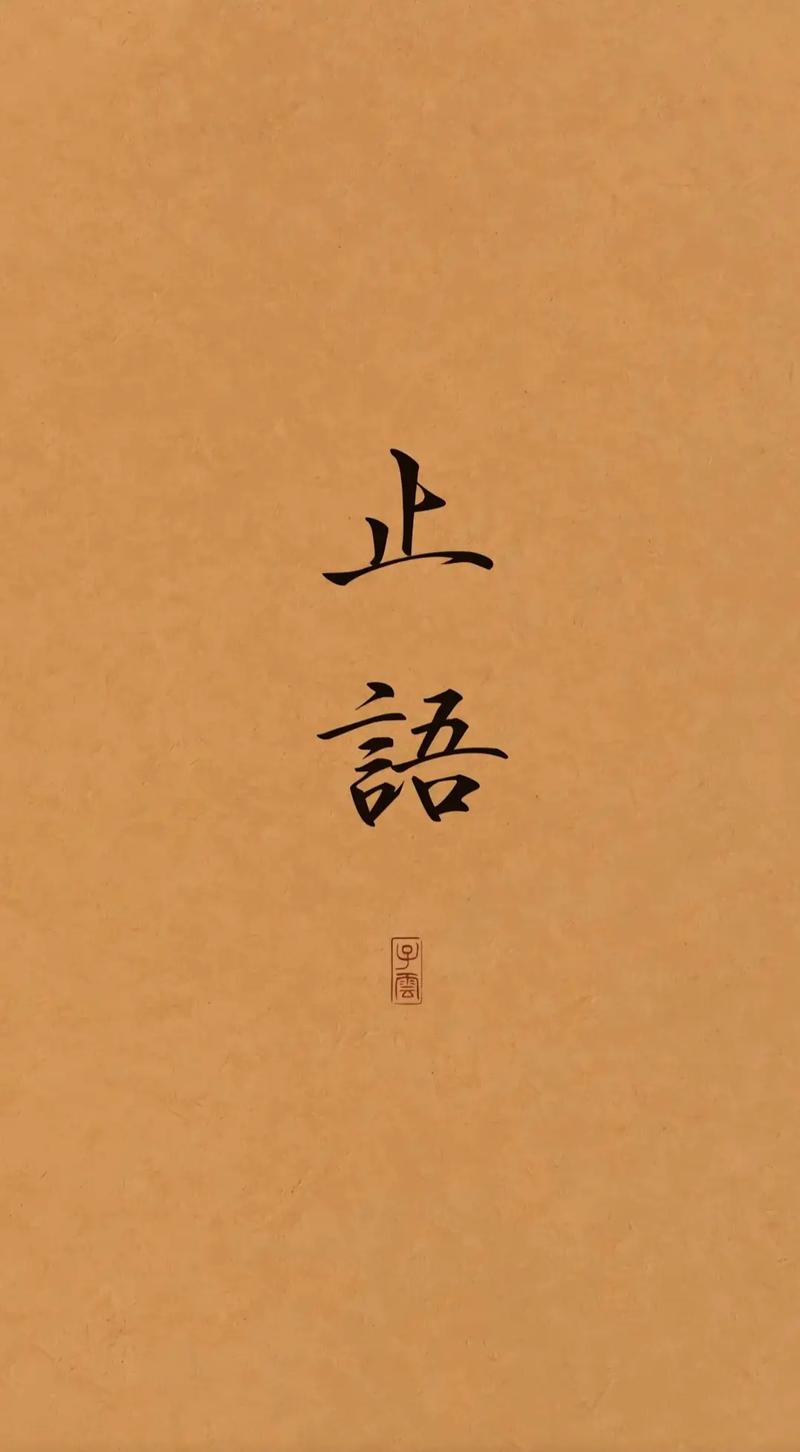 止
語
子雲